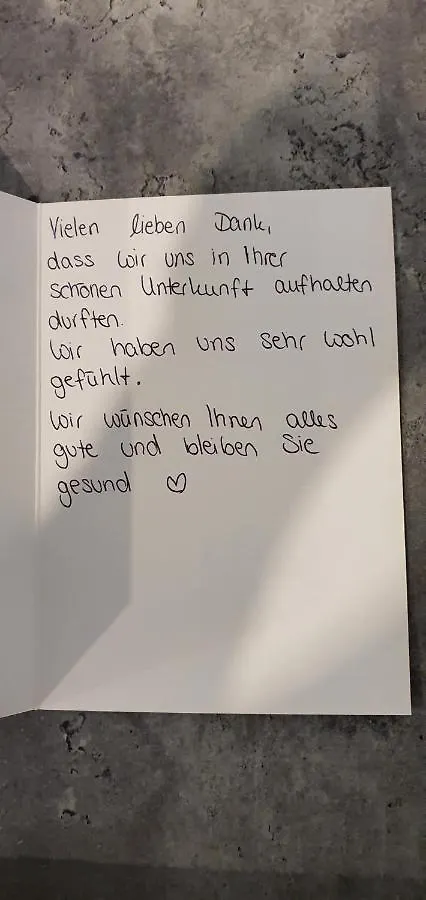 Vielen lieben Dank,
dass wir uns in Ihrer
schönen Unterkunft aufhalten
durften.
Wir haben uns sehr wohl
gefühlt.
Wir wünschen Ihnen alles
gute und bleiben Sie
gesund ♡